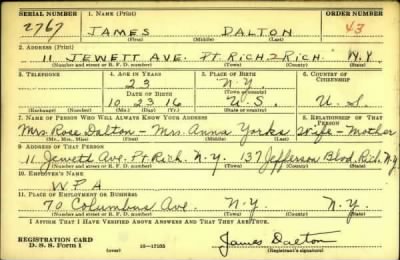 SERIAL NUMBER 1. NAME (Print) ORDER NUMBER
2767 JAMES DALTON 43
(First) (Middle) (Last)
2. ADDRESS (Print)
11 JEWETT AVE. PT. RICH. RICH. N.Y.
(Number and street or R. F. D. number) (Town) (County) (State)
3. TELEPHONE 4. AGE IN YEARS 5. PLACE OF BIRTH 6. COUNTRY OF CITIZENSHIP
23 N.Y.
DATE OF BIRTH (Town or county)
10 23 16 U.S. U.S.
(Exchange) (Number) (Mo.) (Day) (Yr.) (State or country)
7. NAME OF PERSON WHO WILL ALWAYS KNOW YOUR ADDRESS 8. RELATIONSHIP OF THAT PERSON
Mrs. Rose Dalton - Mrs. Anna Yorks Wife - Mother
(Mr., Mrs., Miss) (First) (Middle) (Last)
9. ADDRESS OF THAT PERSON
11 Jewett Ave. Pt. Rich. N.Y. 137 Jefferson Blvd. Rich. N.Y.
(Number and street or R. F. D. number) (Town) (County) (State)
10. EMPLOYER'S NAME
WPA
11. PLACE OF EMPLOYMENT OR BUSINESS
70 Columbus Ave. N.Y. N.Y.
(Number and street or R. F. D. number) (Town) (County) (State)
I AFFIRM THAT I HAVE VERIFIED ABOVE ANSWERS AND THAT THEY ARE TRUE.
REGISTRATION CARD
D. S. S. FORM 1 (over) 16-17105 James Dalton
(Registrant's signature)